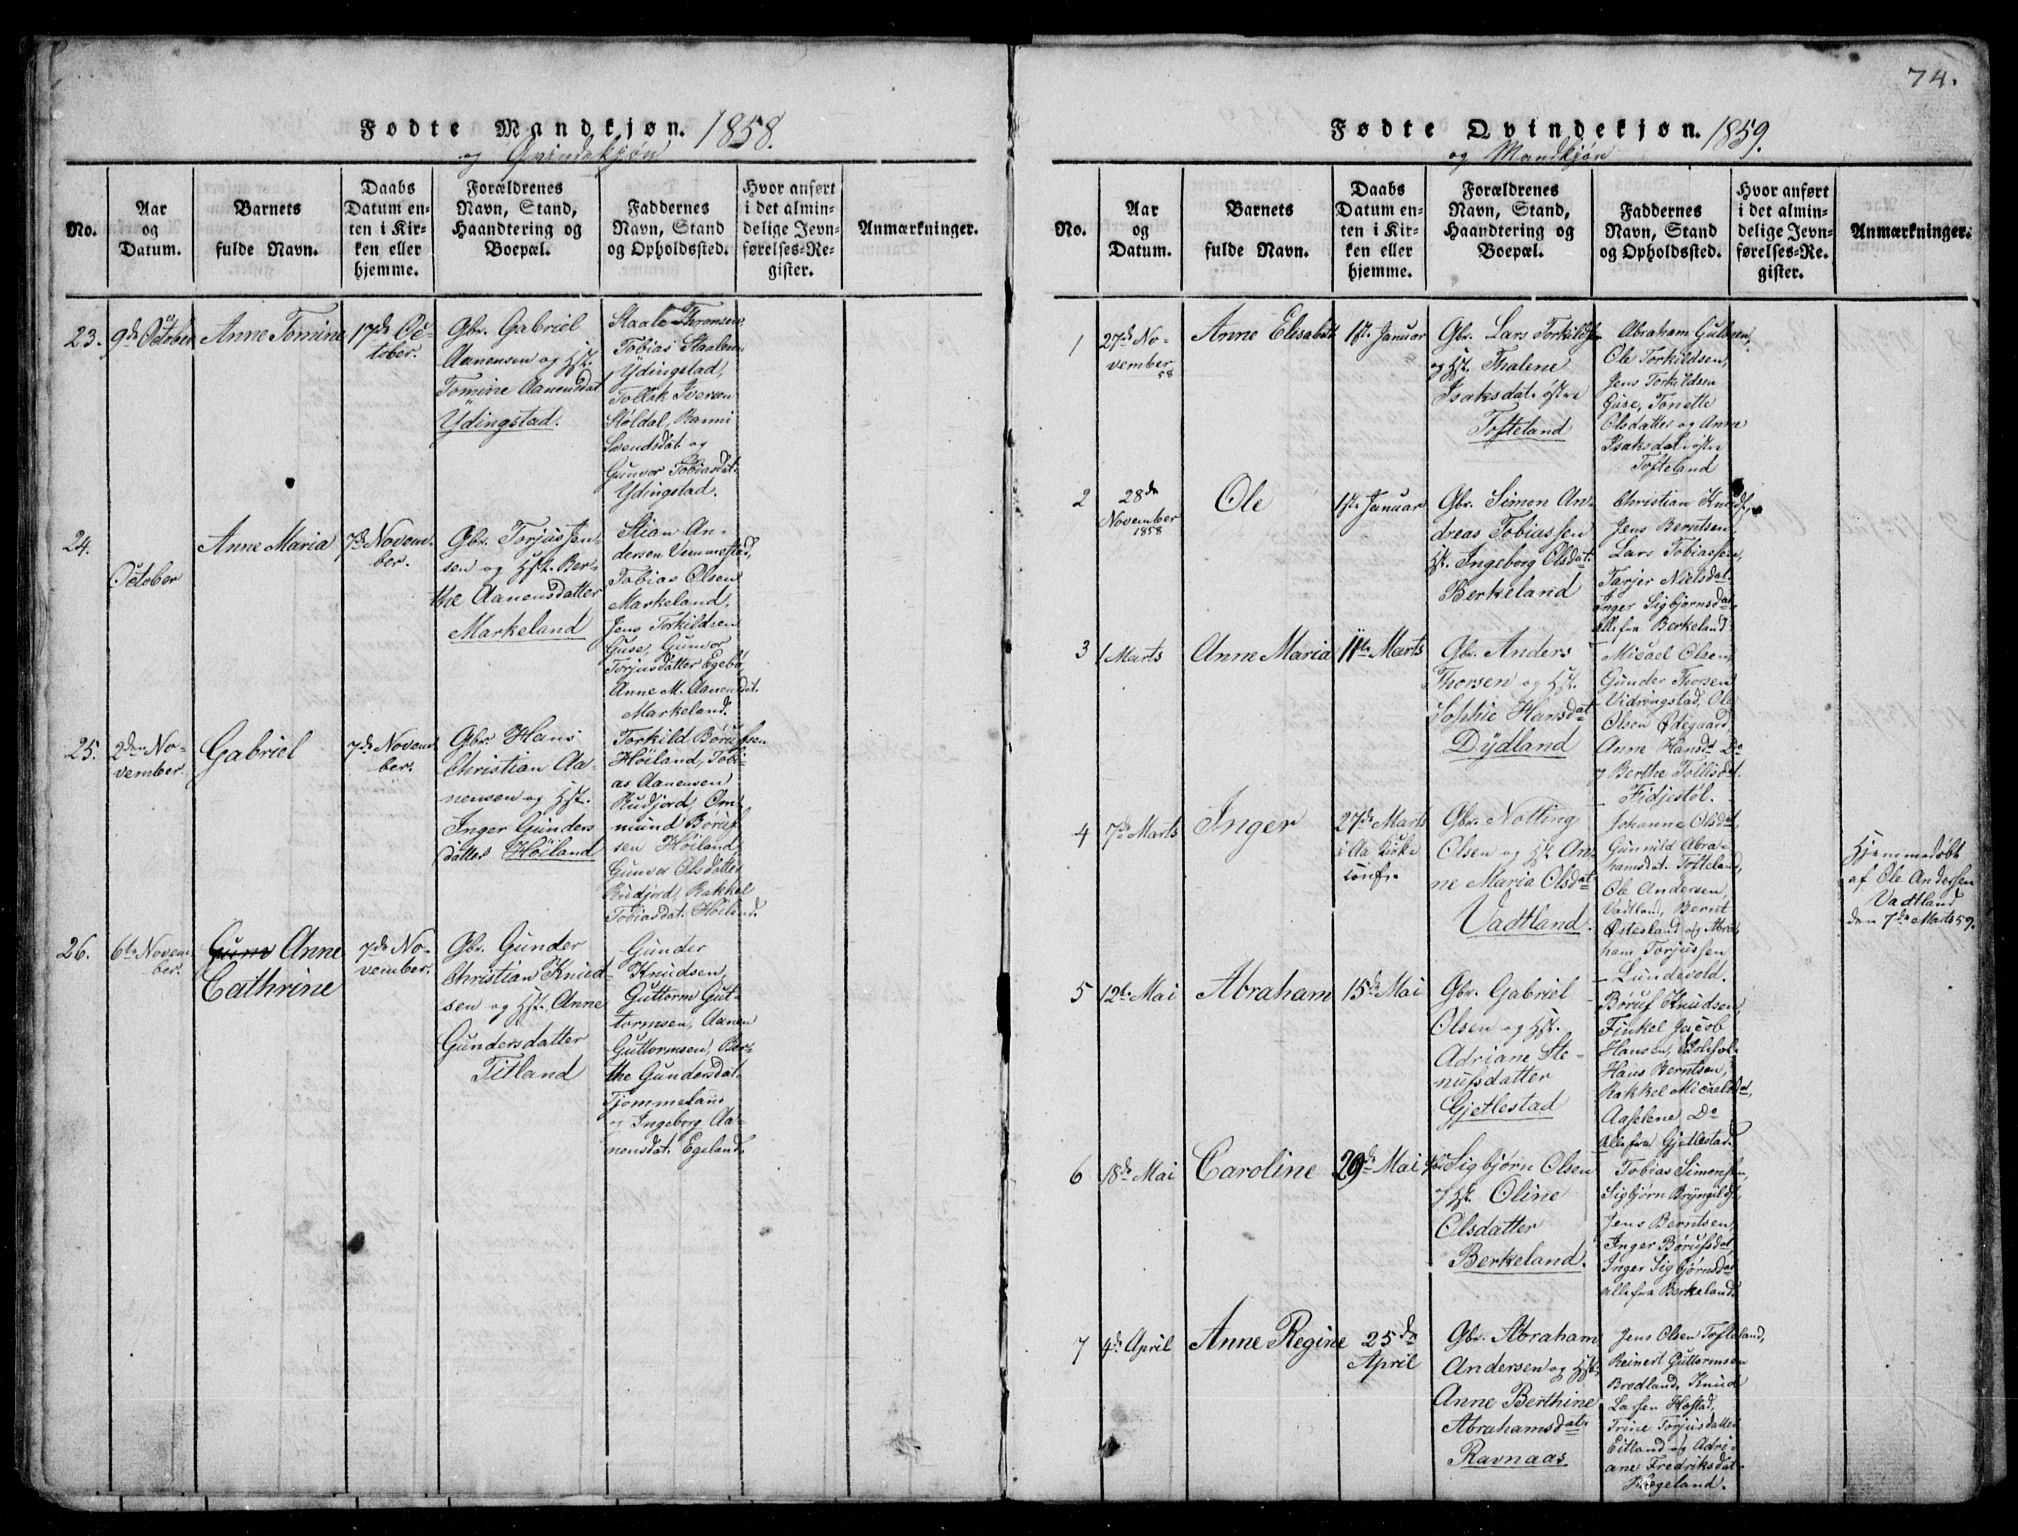 74.
Fødte Mandkjøn. 1858.
og Qvindekjøn
No.
Aar
og
Datum.
Barnets
fulde Navn.
Daabs
Datum en-
ten i Kir-
ken eller
hjemme.
Forældrenes
Navn, Stand,
Haandtering og
Boepæl.
Faddernes
Navn, Stand
og Opholdssted.
Hvor anført
i det almin-
delige Jevn-
førelses-Re-
gister.
Anmærkninger.
23.
9de October
Anne Tomine
17de Oc-
tober.
Gbr. Gabriel
Aanensen og Hst.
Tomine Aanensdat
Ydingstad.
Staale Thromsen,
Tobias Staalesen
Ydingstad,
Tollak Iversen
Støldal, Ranni
Svendsdat. og
Gunvor Tobiasdat.
Ydingstad.
24.
October
Anne Maria
7de Novem-
ber.
Gbr. Torjus Jen-
sen og Hst. Ber-
the Aanensdatter
Markeland
Stian An-
dersen Vemmestad,
Tobias Olsen
Markeland,
Jens Torkildsen
Guse, Gunvor
Torjusdatter Egebø,
Anne M. Aanensdat.
Markeland.
25.
2den No-
vember.
Gabriel
7de Novem-
ber.
Gbr. Hans
Christian Aa-
nensen og Hst.
Inger Gunders
datter Høiland
Torkild Børufsen
Høiland, Tobi-
as Aanensen
Rudjord, Om-
mund Børuf-
sen Høiland,
Gunvor Olsdatter
Rudjord, Rakkel
Tobiasdat. Høiland.
26.
6te Novem-
ber.
Gun Anne
Cathrine
7de No-
vember.
Gbr. Gunder
Christian Knud-
sen og Hst. Anne
Gundersdatter
Titland
Gunder
Knudsen,
Guttorm Gut-
tormsen, Aanen
Guttormsen, Ber-
the Gundersdat.
Tjommeland
og Ingeborg Aa-
nensdat. Egeland.
Fødte Qvindekjøn. 1859.
og Mandkjøn
No.
Aar
og
Datum.
Barnets
fulde Navn.
Daabs
Datum en-
ten i Kir-
ken eller
hjemme.
Forældrenes
Navn, Stand,
Haandtering og
Boepæl.
Faddernes
Navn, Stand
og Opholdssted.
Hvor anført
i det almin-
delige Jevn-
førelses-Re-
gister.
Anmærkninger.
1
27de No-
vember
58
Anne Elisabeth
1ste Januar
Gbr. Lars Torkilds
og Hst. Thalene
Isaksdat. østre
Tofteland
Abraham Gulusen,
Ole Torkildsen,
Jens Torkildsen
Guse, Tonette
Olsdatter og Anne
Isaksdat. østre
Tofteland
2
28de
November
1858
Ole
1ste Januar
Gbr. Simon An-
dreas Tobiassen
Hst. Ingeborg Olsdat.
Berkeland
Christian Knuds.,
Jens Berntsen,
Lars Tobiassen,
Tarjer Nielsdat.
Inger Sigbjørnsdat.
Alle fra Berkeland
3
1 Marts
Anne Maria
11te Marts
Gbr. Anders
Thorsen og Hst.
Sophie Hansdat
Dydland
Micael Olsen,
Gunder Thorsen
Vidringstad, Ole
Olsen Ødegaard,
Anne Hansd. Do
og Berthe Tollisdat.
Fidjestøl.
4
7de Marts
Inger
27de Marts
i Aa Kirke
Conf.
Gbr. Notting
Olsen og Hst. An-
ne Maria Olsdat
Vadtland.
Johanne Olsdat,
Gunnild Abra-
hamsdat. Tofteland,
Ole Andersen,
Vadtland, Bernt
Østesland og Abra
ham Torjussen
Lundevold.
Hjemmedøbt
af Ole Andersen
Vadtland
den 7de Marts 59.
5
12te Mai
Abraham
15de Mai
Gbr. Gabriel
Olsen og Hst.
Adriane Ste-
nufsdatter
Gjetlestad
Børuf Knudsen,
Finkel Jacob
Hansen,
Hans Berntsen,
Rakkel Micaelsdat,
Aaselene Do
Alle fra Gjetlestad
6
18de Mai
Caroline
29de Mai
Gbr. Sigbjørn Olsen
og Hst. Oline
Olsdatter
Berkeland.
Tobias Simonsen,
Sigbjørn Bryngilds.,
Jens Berntsen,
Inger Børufsdat,
Inger Sigbjørnsdat
Alle fra Berkeland.
7
4de April
Anne Regine
25de
April
Gbr. Abraham
Andersen og Hst.
Anne Berthine
Abrahamsdat.
Ravnaas
Jens Olsen Tofteland,
Reinert Guttormsen
Brodland, Knud
Larsen Høstad,
Trine Torjusdatter
Eitland og Adri-
ane Fredriksdat.
Hægeland.